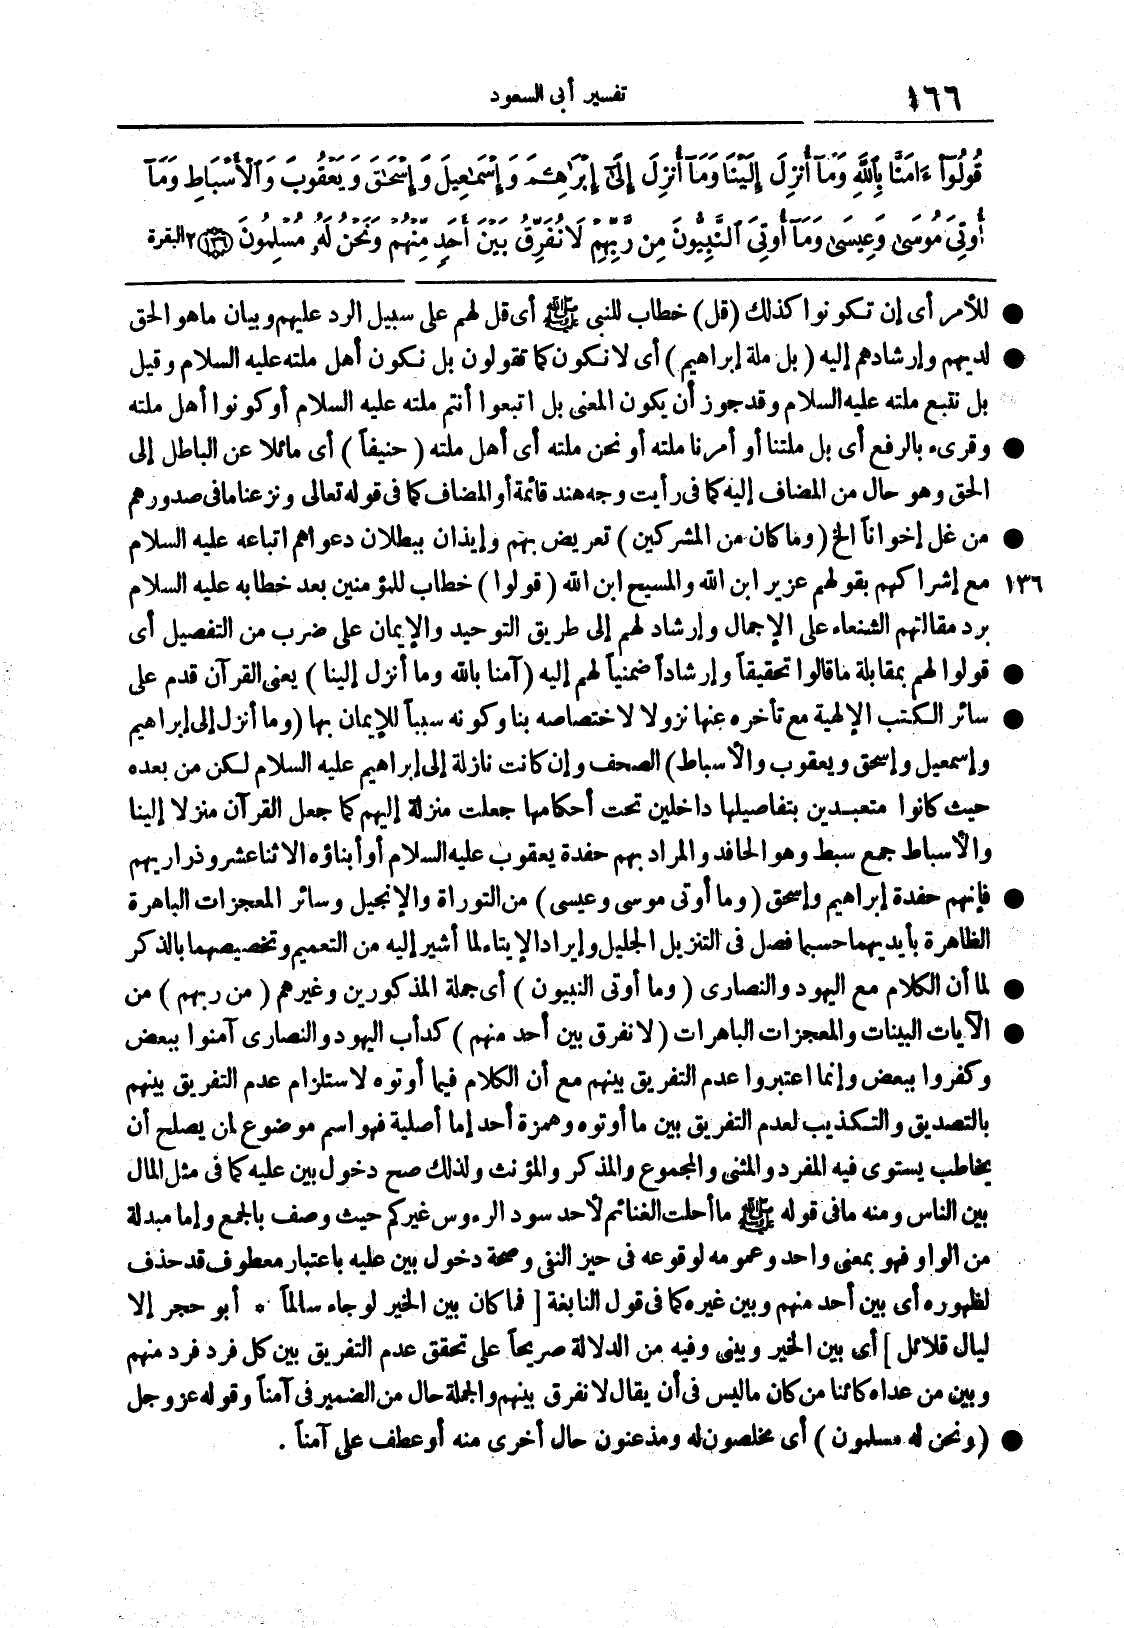 ١٦٦ تفسير أبى السعود
قُولُوٓا۟ ءَامَنَّا بِٱللَّهِ وَمَآ أُنزِلَ إِلَيْنَا وَمَآ أُنزِلَ إِلَىٰٓ إِبْرَٰهِـۧمَ وَإِسْمَٰعِيلَ وَإِسْحَٰقَ وَيَعْقُوبَ وَٱلْأَسْبَاطِ وَمَآ
أُوتِىَ مُوسَىٰ وَعِيسَىٰ وَمَآ أُوتِىَ ٱلنَّبِيُّونَ مِن رَّبِّهِمْ لَا نُفَرِّقُ بَيْنَ أَحَدٍ مِّنْهُمْ وَنَحْنُ لَهُۥ مُسْلِمُونَ ١٣٦ ٢ البقرة
● للأمر أى إن تكونوا كذلك (قل) خطاب للنبى ﷺ أى قل لهم على سبيل الرد عليهم وبيان ما هو الحق
● لديهم وإرشادهم إليه (بل ملة إبراهيم) أى لا نكون كما تقولون بل نكون أهل ملته عليه السلام وقيل
بل نتبع ملته عليه السلام وقد جوز أن يكون المعنى بل اتبعوا أنتم ملته عليه السلام أو كونوا أهل ملته
● وقرىء بالرفع أى بل ملتنا أو أمرنا ملته أو نحن ملته أى أهل ملته (حنيفاً) أى مائلا عن الباطل إلى
الحق وهو حال من المضاف إليه كما فى رأيت وجه هند قائمة أو المضاف كما فى قوله تعالى ونزعنا ما فى صدورهم
● من غل إخواناً الخ (وما كان من المشركين) تعريض بهم وإيذان ببطلان دعواهم اتباعه عليه السلام
١٣٦ مع إشراكهم بقولهم عزير ابن الله والمسيح ابن الله (قولوا) خطاب للمؤمنين بعد خطابه عليه السلام
برد مقالتهم الشنعاء على الإجمال وإرشاد لهم إلى طريق التوحيد والإيمان على ضرب من التفصيل أى
● قولوا لهم بمقابلة ما قالوا تحقيقاً وإرشاداً ضمنياً لهم إليه (آمنا بالله وما أنزل إلينا) يعنى القرآن قدم على
● سائر الكتب الإلهية مع تأخره عنها نزولا لاختصاصه بنا وكونه سبباً للإيمان بها (وما أنزل إلى إبراهيم
وإسمعيل وإسحق ويعقوب والأسباط) الصحف وإن كانت نازلة إلى إبراهيم عليه السلام لكن من بعده
حيث كانوا متعبدين بتفاصيلها داخلين تحت أحكامها جعلت منزلة إليهم كما جعل القرآن منزلا إلينا
والأسباط جمع سبط وهو الحافد والمراد بهم حفدة يعقوب عليه السلام أو أبناؤه الاثنا عشر وذراريهم
● فإنهم حفدة إبراهيم وإسحق (وما أوتى موسى وعيسى) من التوراة والإنجيل وسائر المعجزات الباهرة
الظاهرة بأيديهما حسبما فصل فى التنزيل الجليل وإيراد الإيتاء لما أشير إليه من التعميم وتخصيصهما بالذكر
● لما أن الكلام مع اليهود والنصارى (وما أوتى النبيون) أى جملة المذكورين وغيرهم (من ربهم) من
● الآيات البينات والمعجزات الباهرات (لا نفرق بين أحد منهم) كدأب اليهود والنصارى آمنوا ببعض
وكفروا ببعض وإنما اعتبروا عدم التفريق بينهم مع أن الكلام فيما أوتوه لاستلزام عدم التفريق بينهم
بالتصديق والتكذيب لعدم التفريق بين ما أوتوه وهمزة أحد إما أصلية فهو اسم موضوع لمن يصلح أن
يخاطب يستوى فيه المفرد والمثنى والمجموع والمذكر والمؤنث ولذلك صح دخول بين عليه كما فى مثل المال
بين الناس ومنه ما فى قوله ﷺ ما أحلت الغنائم لأحد سود الرءوس غيركم حيث وصف بالجمع وإما مبدلة
من الواو فهو بمعنى واحد وعمومه لوقوعه فى حيز النفى وصحة دخول بين عليه باعتبار معطوف قد حذف
لظهوره أى بين أحد منهم وبين غيره كما فى قول النابغة [فما كان بين الخير لو جاء سالماً * أبو حجر إلا
ليال قلائل] أى بين الخير وبينى وفيه من الدلالة صريحاً على تحقق عدم التفريق بين كل فرد فرد منهم
وبين من عداه كائنا من كان ما ليس فى أن يقال لا نفرق بينهم والجملة حال من الضمير فى آمنا وقوله عز وجل
● (ونحن له مسلمون) أى مخلصون له ومذعنون حال أخرى منه أو عطف على آمنا .